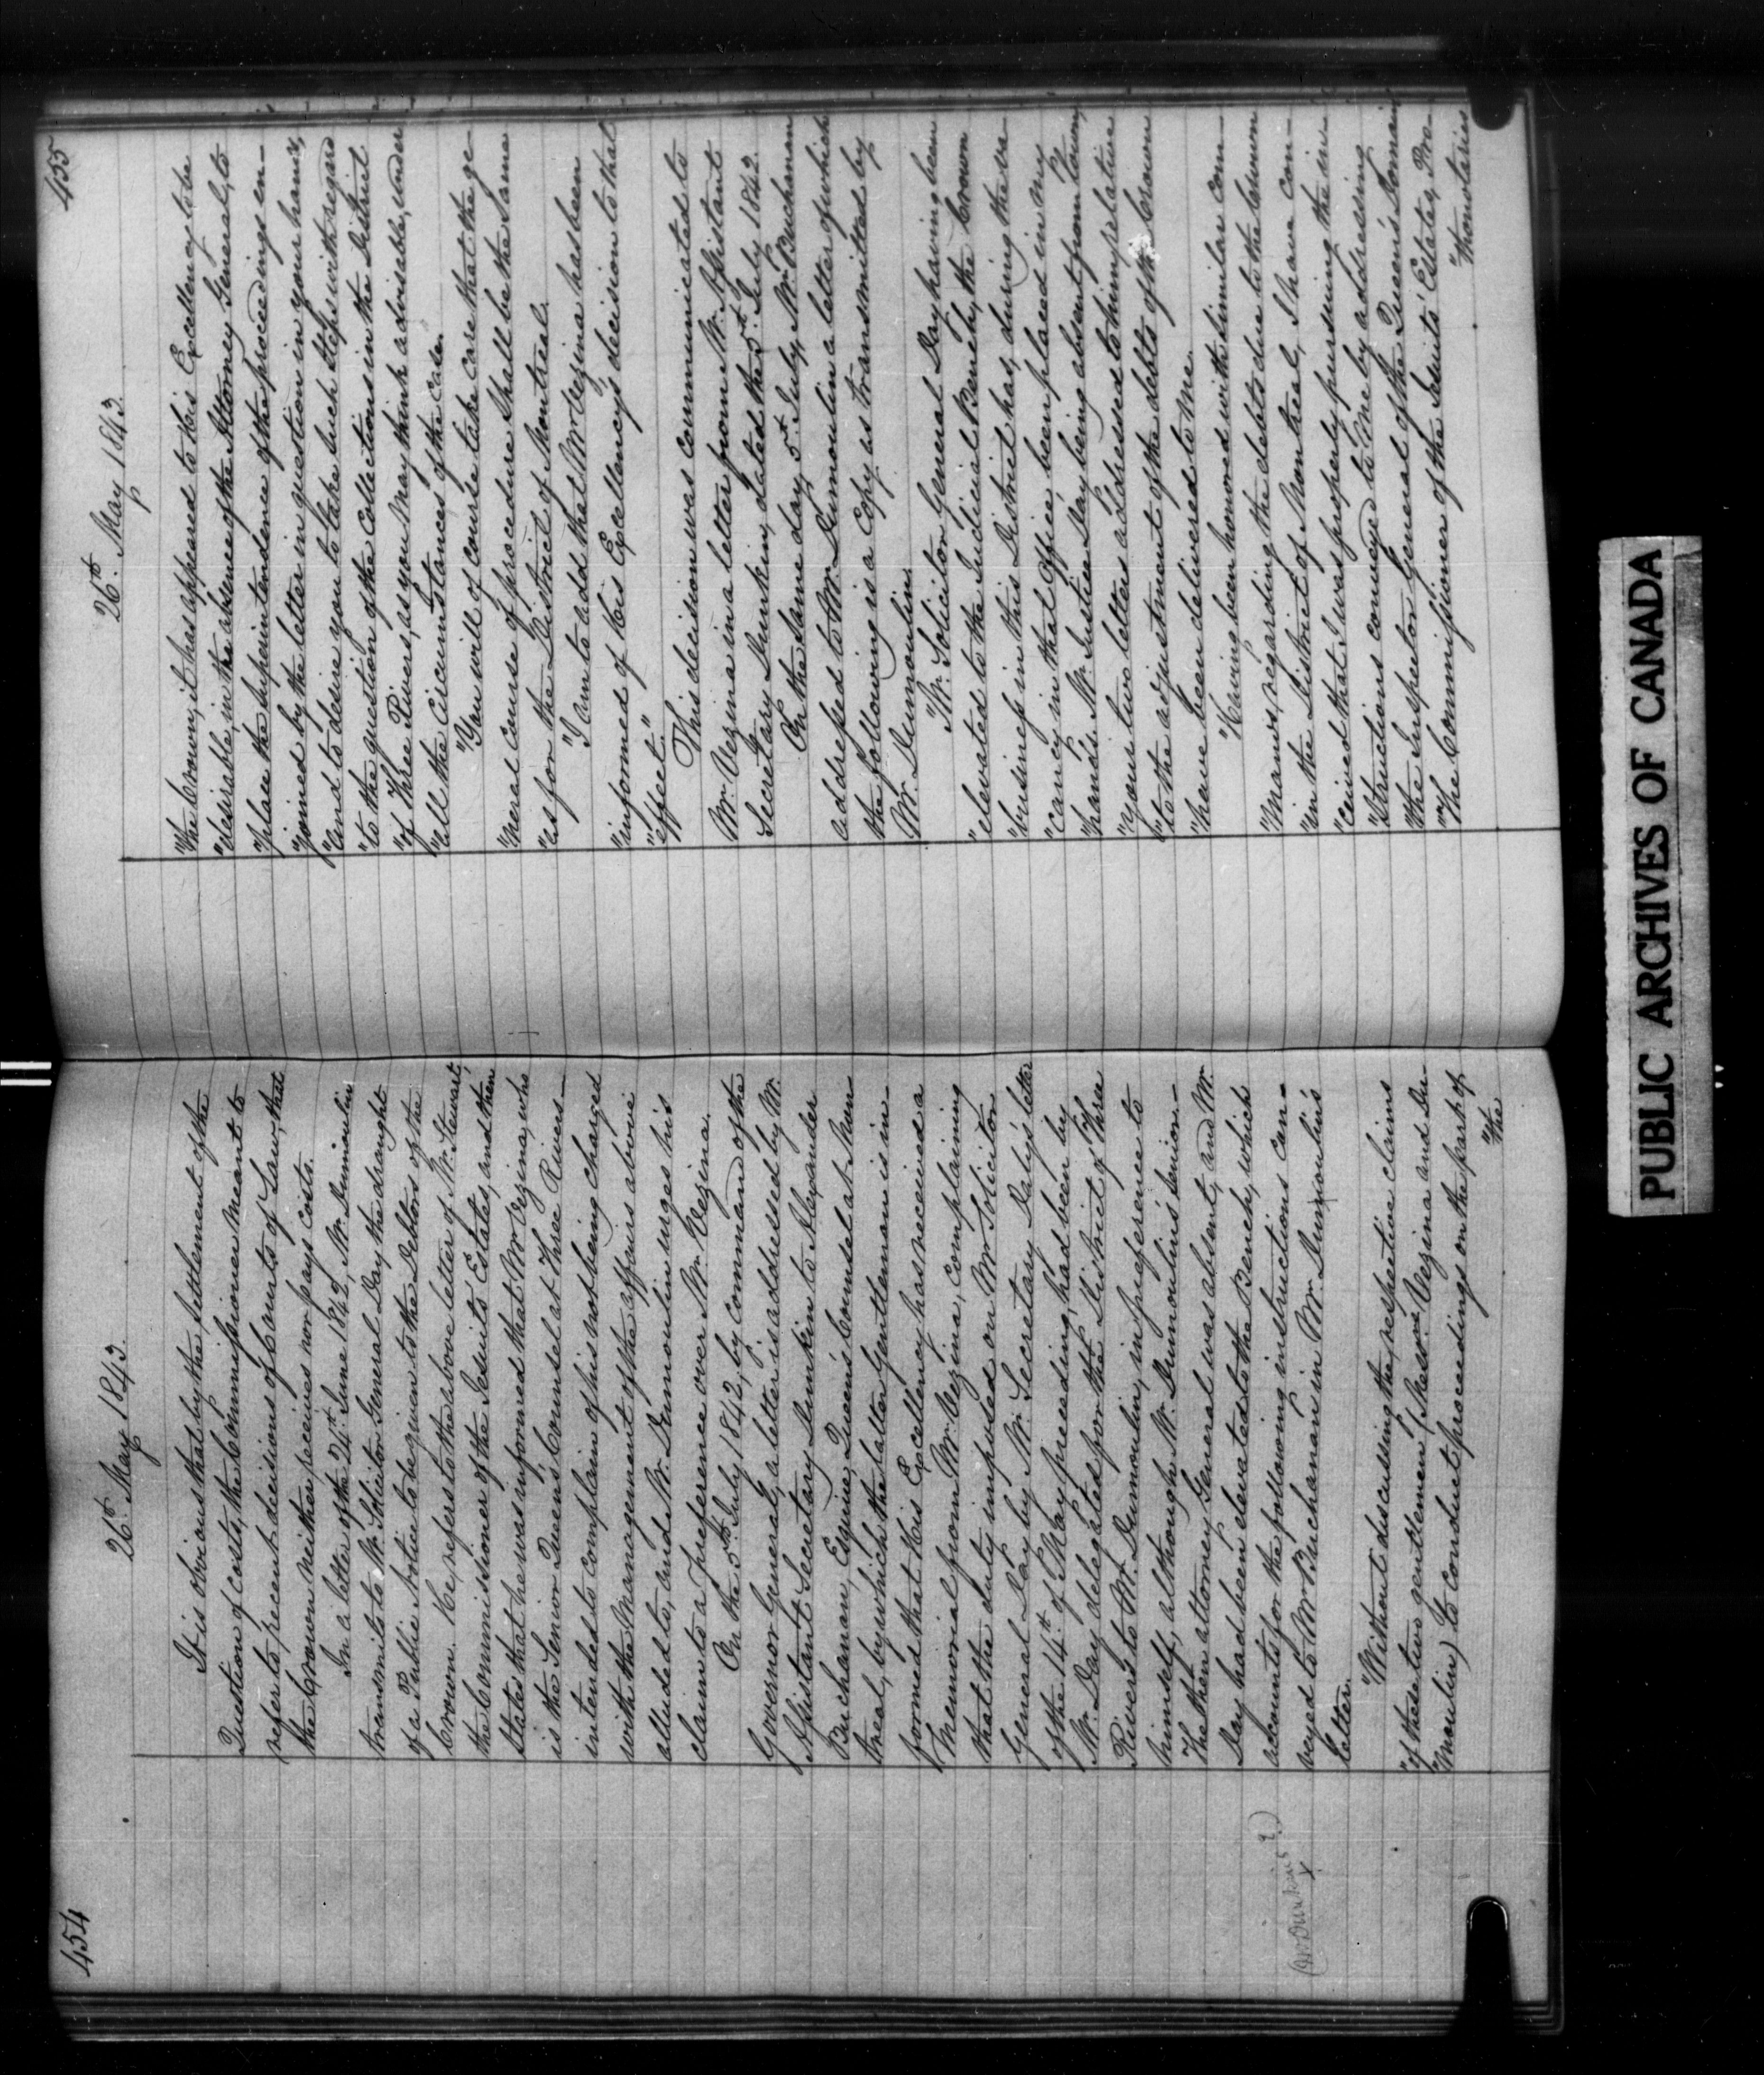 454
26th. May 1843.
It is obvious that by the settlement of the
Question of Costs, the Commissioner meant to
refer to recent decisions of Courts of Law, that
the Crown neither receives nor pays Costs.
In a letter of the 24th. June 1842, Mr. Dumoulin
transmits to Mr. Solicitor General Day the draught
of a Public Notice to be given to the Debtors of the
Crown. He, refers to the above letter of Mr. Stewart,
the Commissioner of the Jesuits' Estates, and then
States that he was informed that Mr. Vezina, who
is the Senior Queen's Counsel at Three Rivers —
intended to complain of his not being charged
with the Management of the affairs above
alluded to, and Mr. Dumoulin urges his
claim to a preference over Mr. Vezina.
On the 5th. July 1842, by Command of the
Governor General, a letter is addressed by Mr.
Assistant Secretary Dunkin to Alexander
Buchanan, Esquire, Queen's Counsel at Mon-
treal, by which the latter Gentleman is in-
formed that His Excellency has received a
Memorial from Mr. Vezina, complaining
that the duty imposed on Mr. Solicitor
General Day by Mr. Secretary Daly's letter
of the 14th. of May preceding, had been by
Mr. Day delegated for the District of Three
Rivers to Mr. Dumoulin, in preference to
himself, although Mr. Dumoulin's senior —
The then attorney General was absent, and Mr.
Day had been elevated to the Bench, which
accounts for the following instructions con-
veyed to Mr. Buchanan in Mr. Dumoulin's
letter.
(Mr Dunkin's ?)
x
"Without discussing the respective claims
"of these two gentlemen (Messrs. Vezina and Du-
"moulin) to conduct proceedings on the part of
"the
455
26th. May 1843.
"the Crown, it has appeared to His Excellency to be
"desirable, in the absence of the Attorney General, to
"place the superintendence of the proceedings en-
"joined by the letter in question in your hands,
"and to desire you to take such steps with regard
"to the question of the Collections in the District
"of Three Rivers, as you may think advisable, under
"all the Circumstances of the Case.
"You will of course take care that the ge-
"neral course of procedure shall be the same
"as for the District of Montreal.
"I am to add that Mr. Vezina has been
"informed of His Excellency's decision to that
"effect."
This decision was communicated to
Mr. Vezina in a letter from Mr. Assistant
Secretary Dunkin, dated the 5th. July 1842.
On the same day, 5th. July, Mr. Buchanan
addressed to Mr. Dumoulin a letter of which
the following is a Copy as transmitted by
Mr. Dumoulin.
"Mr. Solicitor General Day having been
"elevated to the Judicial Bench, the Crown
"business in this District has, during the va-
"cancy in that office, been placed in my
"hands. Mr. Justice Day being absent from town,
"your two letters addressed to him, relative
"to the adjustment of the debts of the Crown
"have been delivered to me.
"Having been honored with similar Com-
"mands, regarding the debts due to the Crown
"in the District of Montreal, I have con-
"ceived that I was properly pursuing the in-
"structions conveyed to me by addressing
"the Inspector General of the Queen's Domain
"the Commissioner of the Jesuits' Estates, Pro-
"thonotaries
PUBLIC ARCHIVES OF CANADA